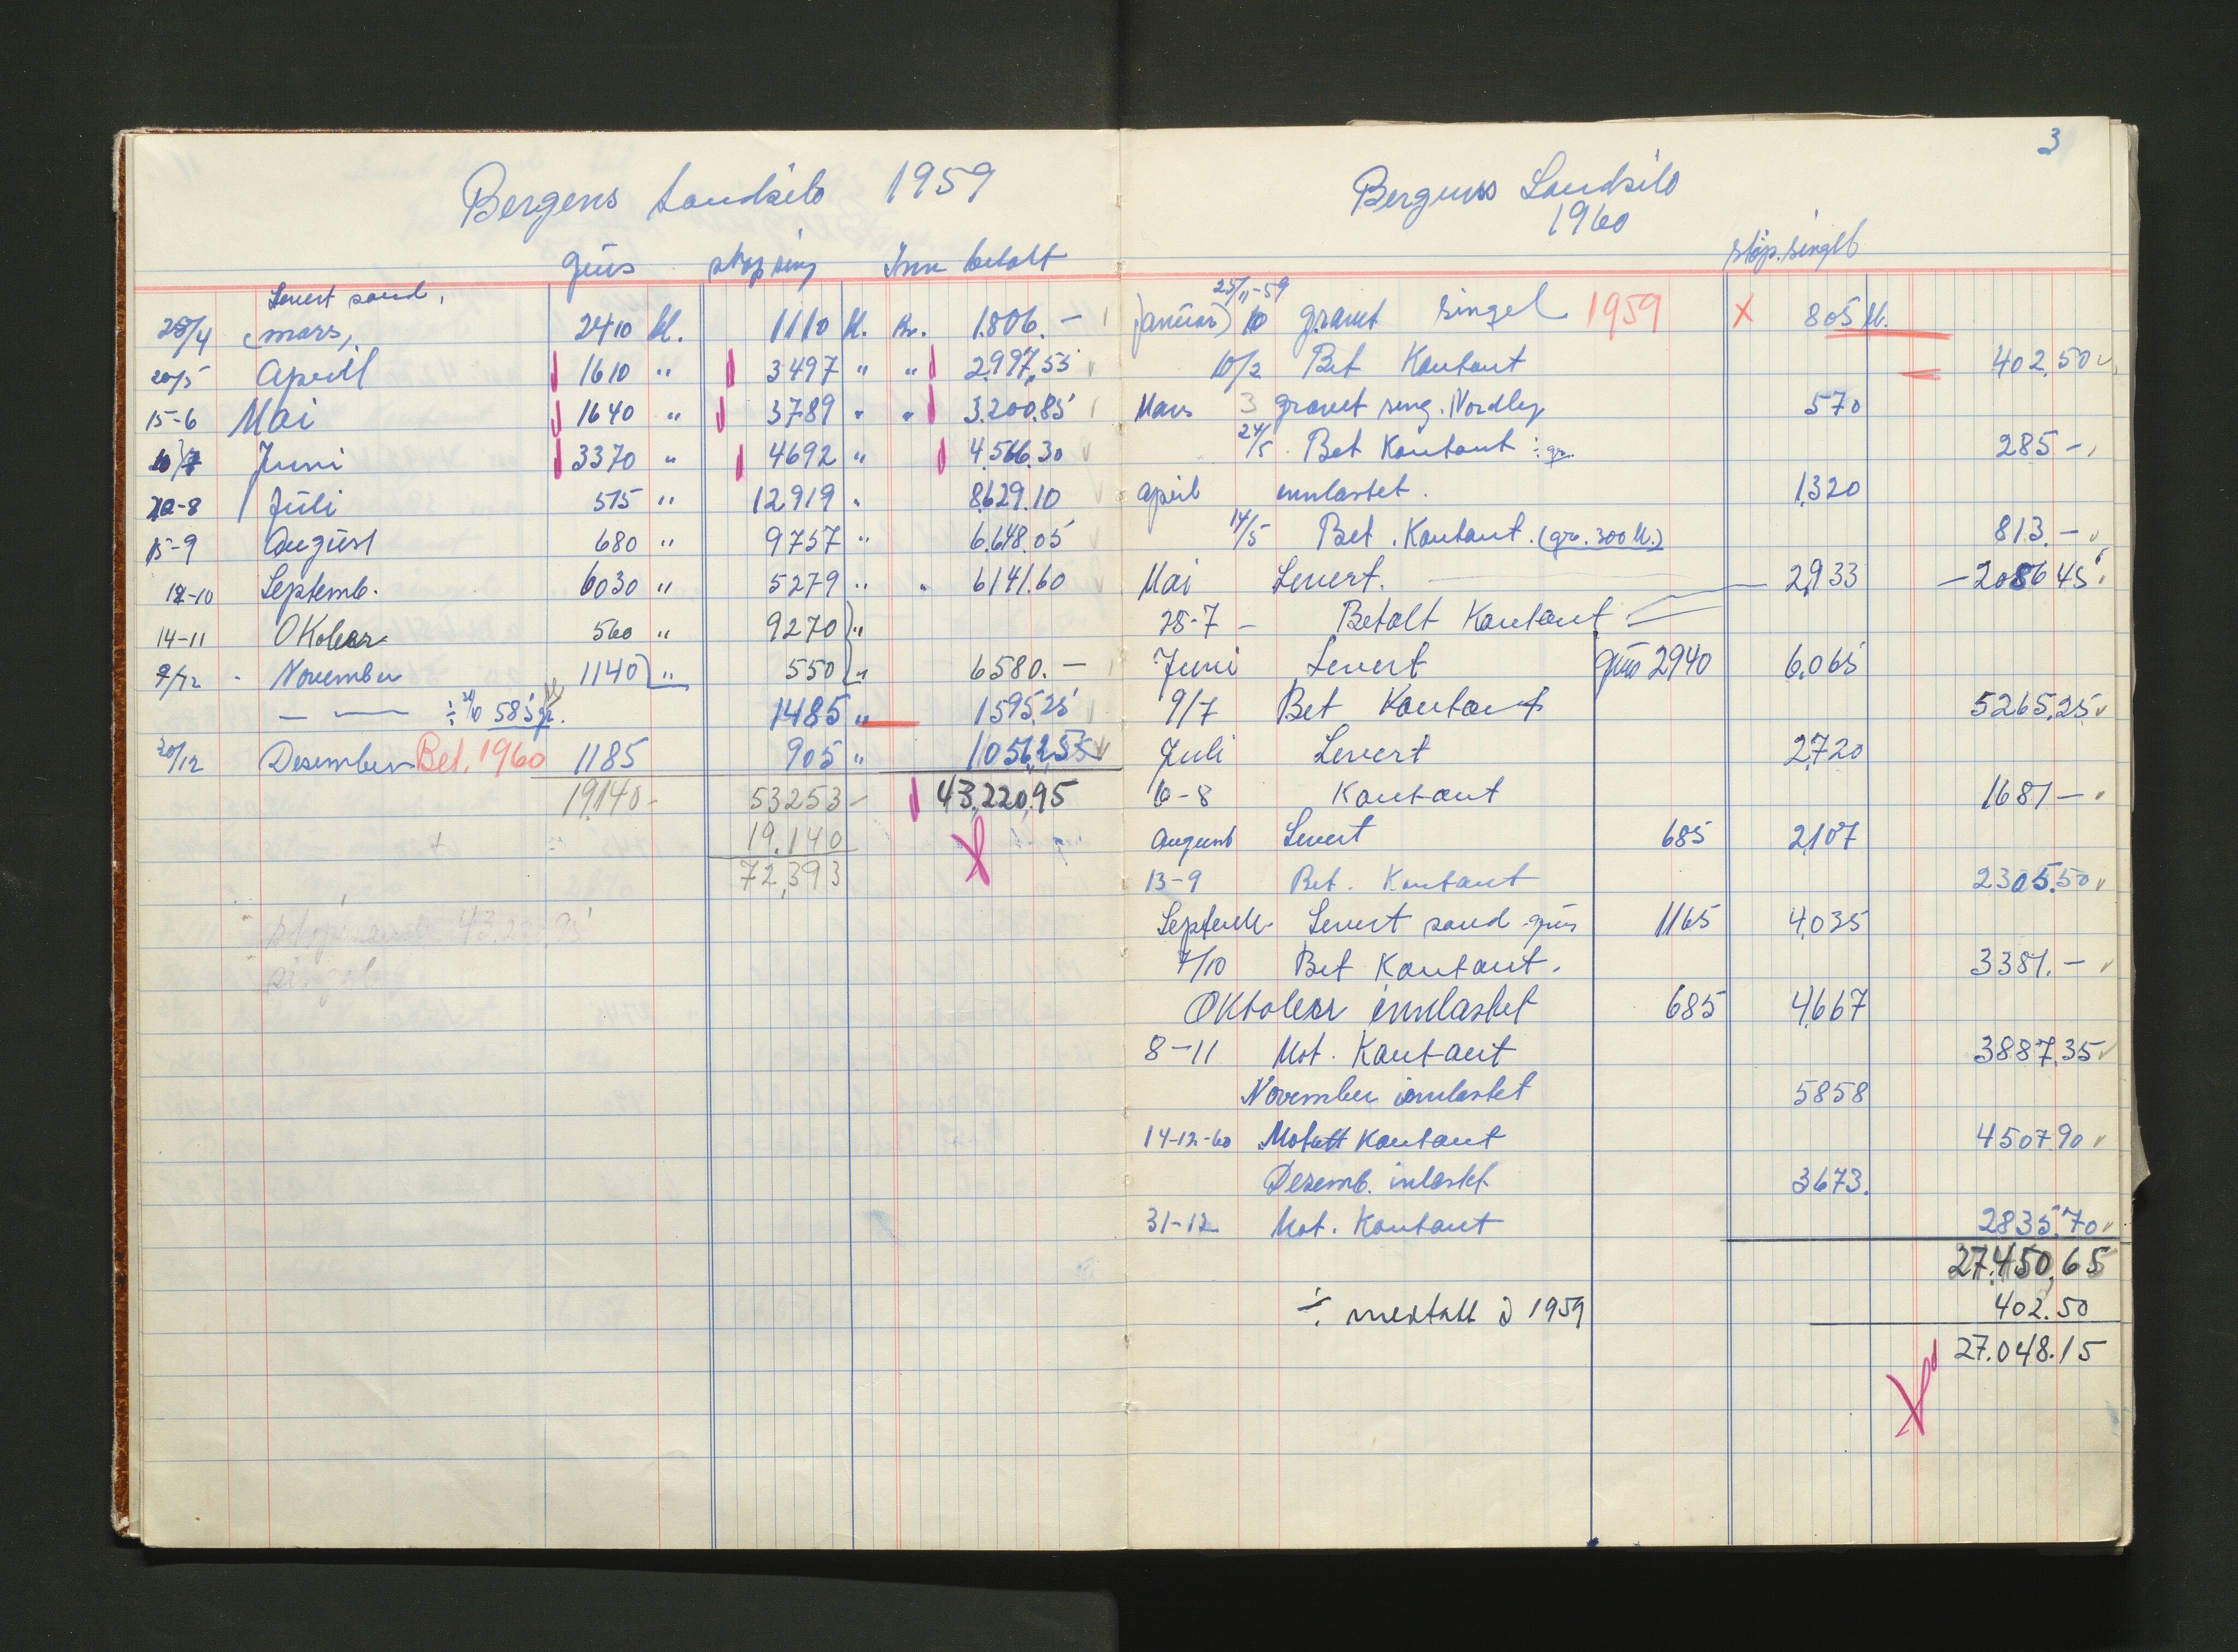 Bergens Sandsilo 1959
grus støp sing Inn betalt
Levert sand,
25/4 mars, 2410 hl. 1110 hl. Kr. 1.806.-
20/5 Aprill 1610 " 3497 " " 2.997,55
15-6 Mai 1640 " 3789 " " 3.200.85
10/7 Juni 3370 " 4692 " 4.566.30
10-8 Juli 515 " 12919 " 8629.10
15-9 August 680 " 9757 " 6.648.05
12-10 Septemb. 6030 " 5279 " " 6141.60
14-11 OKober 560 " 9270 "
9/12 - November 1140 " 550 " 6580.-
- — ÷ 585 gr. 1485 " 1595,25
30/12 Desember Bet. 1960 1185 905 " 1056,25
19.140- 53253- 43.220.95
19.140
72,393
støpesand 43.220.95
singel
3
Bergens Sandsilo
1960
støp. singel
25/11-59
Januar) 10 gravet singel 1959 x 805 hl.
10/2 Bet Kontant 402.50
Mars 3 gravet sing. Nordley 570
24/5 Bet Kontant ÷ gr. 285-
april innlastet. 1320
14/5 Bet. Kontant. (gr. 300 hl.) 813.-
Mai Levert. 2933 - 2086 45
28-7 - Betalt Kontant
Juni Levert grus 2940 6.065
9/7 Bet Kontant 5265.25
Juli Levert 2720
6-8 Kontant 1681-
August Levert 685 2107
13-9 Bet. Kontant 2305.50
Septemb. Levert sand-grus 1165 4.035
7/10 Bet Kontant. 3381.-
Oktober innlastet 685 4667
8-11 Mot. Kontant 3887.35
November innlastet 5858
14-12-60 Motatt Kontant 4507.90
Desemb. inlastet 3673.
31-12 Mot. Kontant 2835.70
27.450,65
÷ medtatt i 1959 402.50
27.048.15